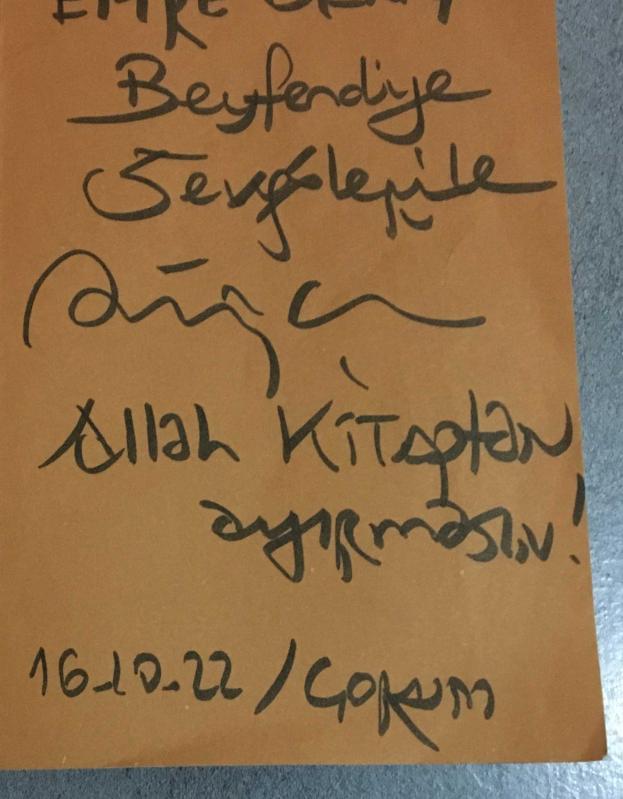 EMRE
Beyfendiye
Sevgilerimle
Allah Kitaptan
ayırmasın!
16.10.22 / Çorum